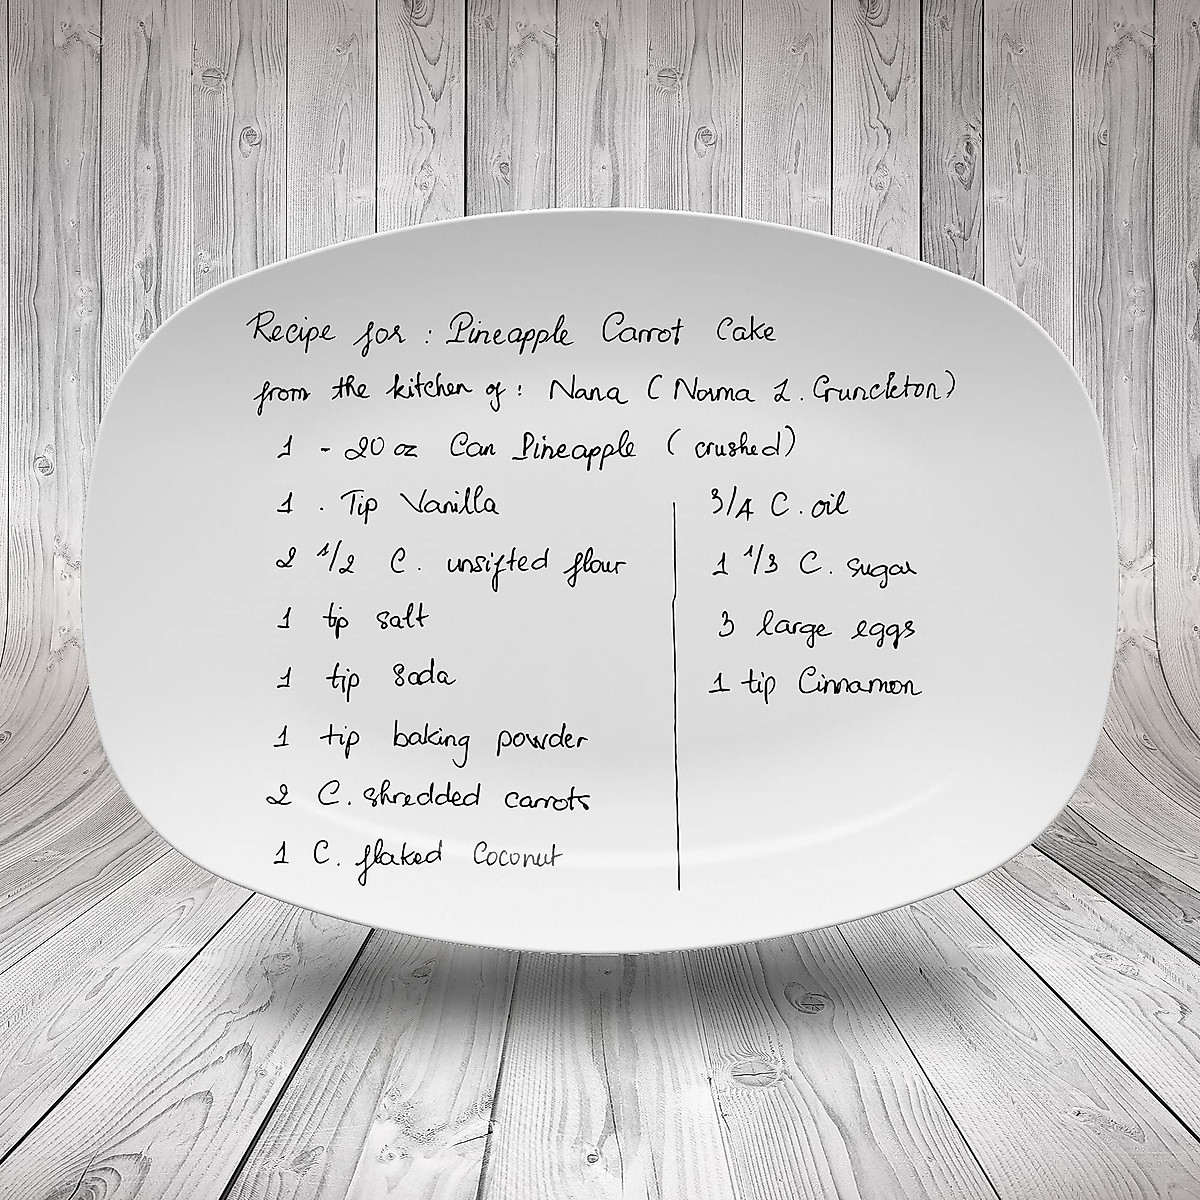 Recipe for : Pineapple Carrot Cake
from the kitchen of : Nana ( Norma L. Crunckleton)
1 - 20 oz Can Pineapple ( crushed)
1 . Tip Vanilla
2 1/2 C. unsifted flour
1 tip salt
1 tip Soda
1 tip baking powder
2 C. shredded carrots
1 C. flaked Coconut
3/4 C. oil
1 1/3 C. sugar
3 large eggs
1 tip Cinnamon